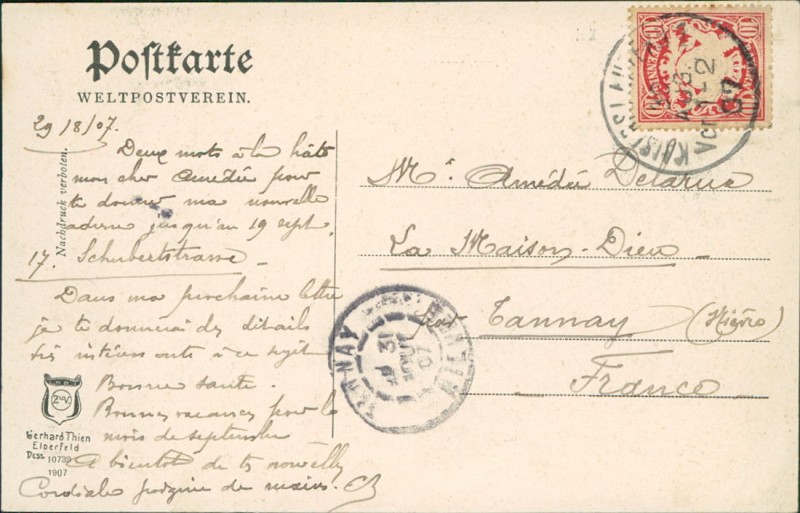 Postkarte
WELTPOSTVEREIN.
29/8/07.
Deux mots à la hâte
mon cher Amédée pour
te donner ma nouvelle
adresse jusqu'au 19 sept.
17. Schubertstrasse -
Dans ma prochaine lettre
je te donnerai des détails
très intéressants à ce sujet
Bonne santé.
Bonnes vacances pour le
mois de septembre
A bientôt de tes nouvelles
Cordiale poignée de mains. CB
Nachdruck verboten.
Gerhard Thien
Elberfeld
Dess. 10739
1907
Mr. Amédée Delarue
La Maison-Dieu
par Tannay (Nièvre)
France
10 10
KAISERSLAUTERN
30 Aug
Vor 1-2
07
TANNAY
31
07
NIEVRE